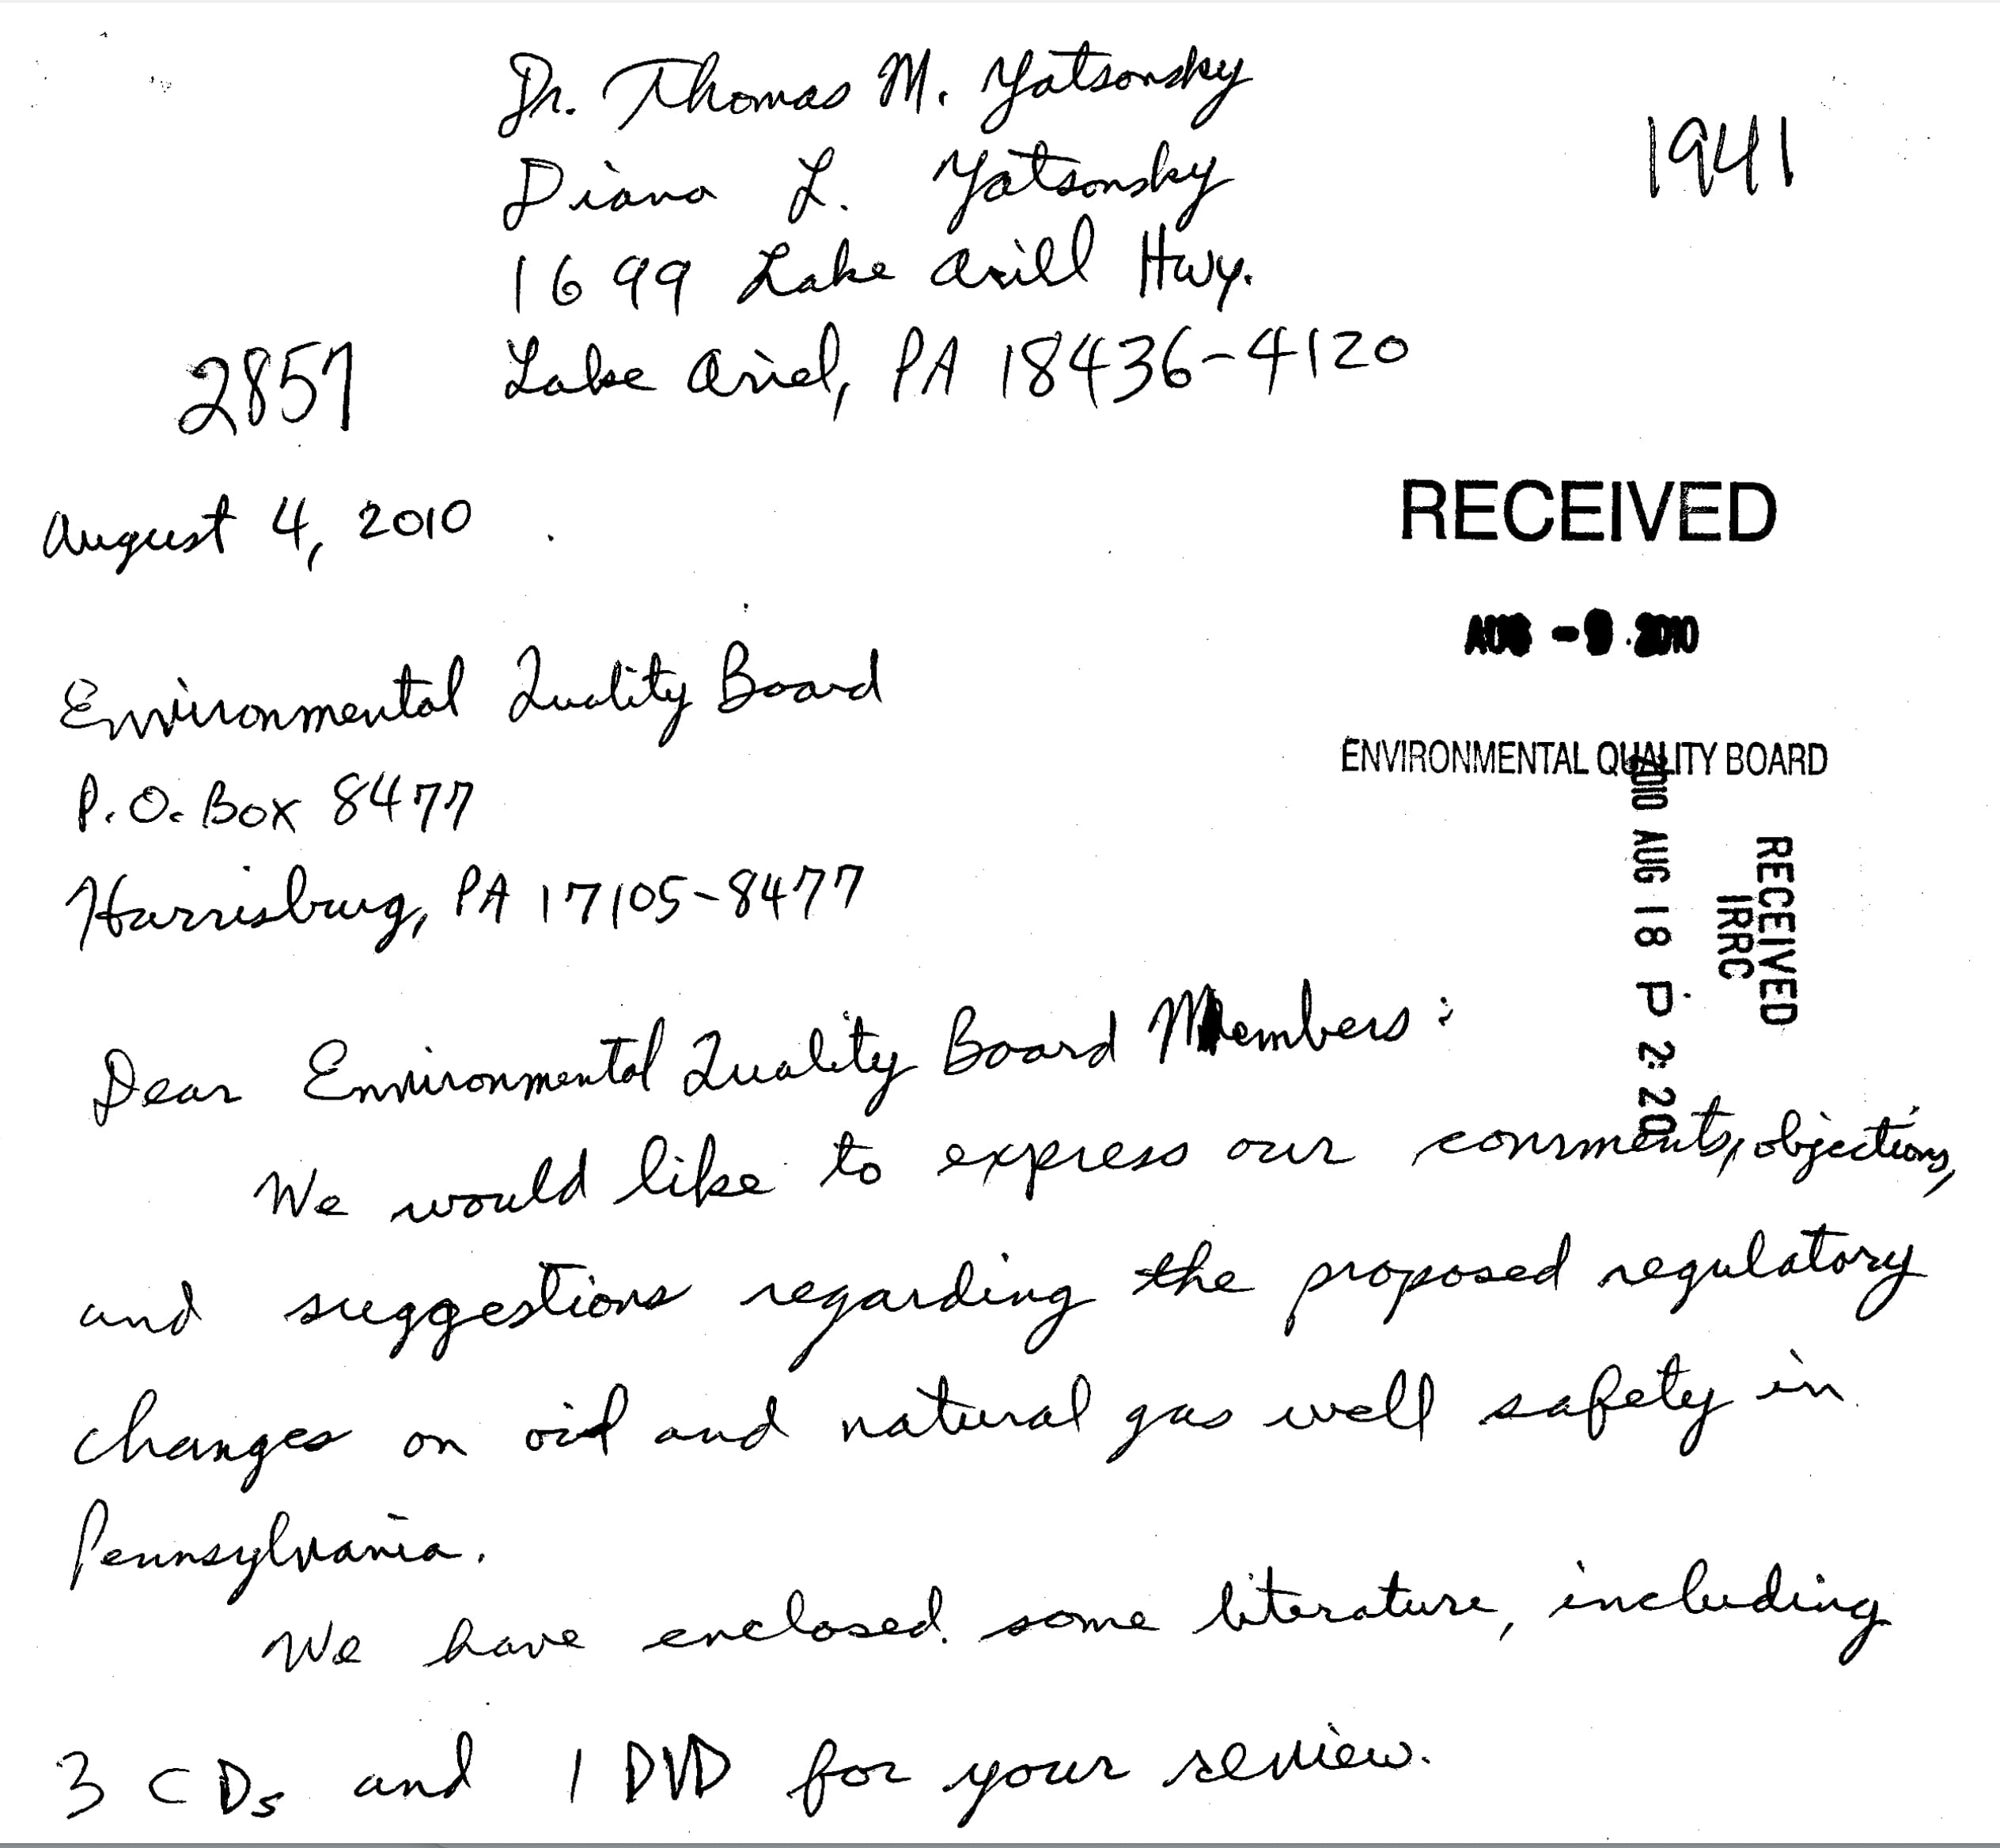 Dr. Thomas M. Yatsonsky
1941
Diana L. Yatsonsky
1699 Lake Arill Hwy.
2857
Lake Ariel, PA 18436-4120
August 4, 2010
RECEIVED
AUG -9 2010
Environmental Quality Board
ENVIRONMENTAL QUALITY BOARD
P.O. Box 8477
Harrisburg, PA 17105-8477
RECEIVED
IRRC
2010 AUG 18 P 2:20
Dear Environmental Quality Board Members:
We would like to express our comments, objections,
and suggestions regarding the proposed regulatory
changes on oil and natural gas well safety in
Pennsylvania.
We have enclosed some literature, including
3 CDs and 1 DVD for your review.